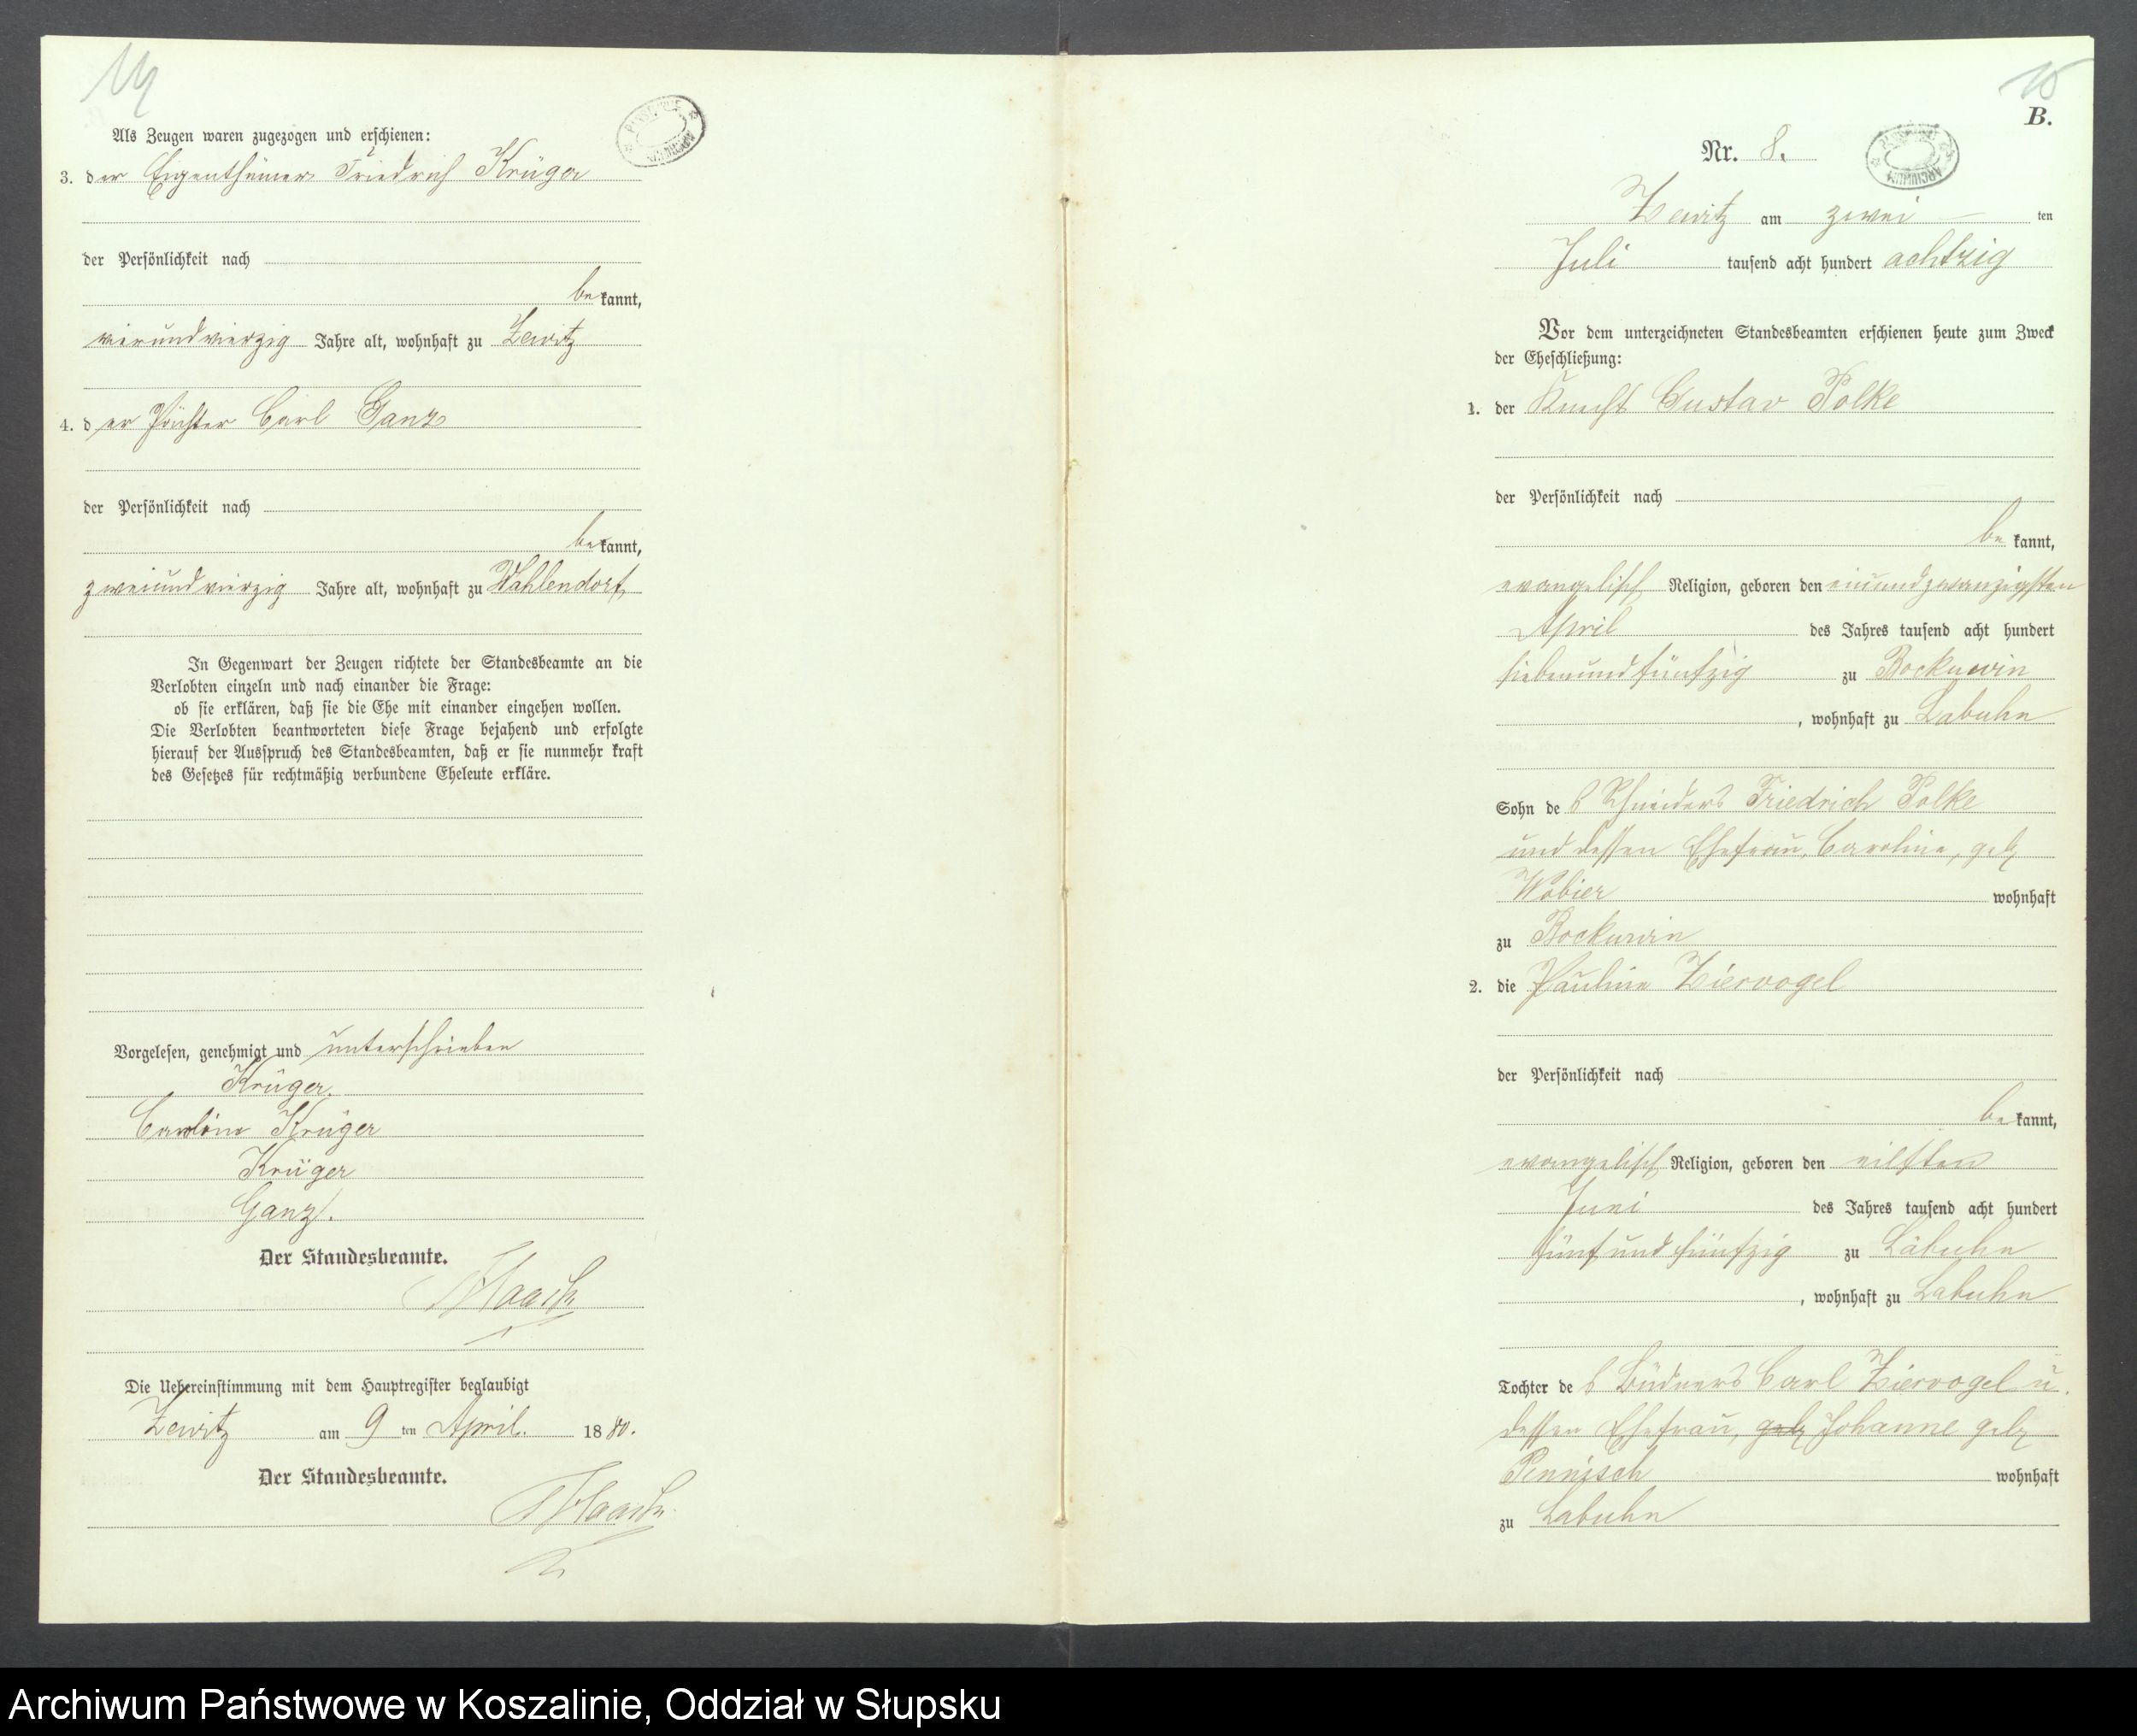 14
Als Zeugen waren zugezogen und erschienen:
3. der Eigenthümer Friedrich Krüger
der Persönlichkeit nach
bekannt,
vierundvierzig Jahre alt, wohnhaft zu Zewitz
4. der Pächter Carl Ganz
der Persönlichkeit nach
bekannt,
zweiundvierzig Jahre alt, wohnhaft zu Wahlendorf
In Gegenwart der Zeugen richtete der Standesbeamte an die
Verlobten einzeln und nach einander die Frage:
ob sie erklären, daß sie die Ehe mit einander eingehen wollen.
Die Verlobten beantworteten diese Frage bejahend und erfolgte
hierauf der Ausspruch des Standesbeamten, daß er sie nunmehr kraft
des Gesetzes für rechtmäßig verbundene Eheleute erkläre.
Vorgelesen, genehmigt und unterschrieben
Krüger.
Caroline Krüger
Krüger
Ganz.
Der Standesbeamte.
Die Uebereinstimmung mit dem Hauptregister beglaubigt
Zewitz am 9 ten April. 1880.
Der Standesbeamte.
15
B.
Nr. 8.
Zewitz am zwei ten
Juli tausend acht hundert achtzig
Vor dem unterzeichneten Standesbeamten erschienen heute zum Zweck
der Eheschließung:
1. der Knecht Gustav Polke
der Persönlichkeit nach
bekannt,
evangelisch Religion, geboren den einundzwanzigsten
April des Jahres tausend acht hundert
siebenundfünfzig zu Bockuwin
, wohnhaft zu Labuhn
Sohn des Schneiders Friedrich Polke
und dessen Ehefrau, Caroline, geb.
Wobier wohnhaft
zu Bockuwin
2. die Pauline Ziervogel
der Persönlichkeit nach
bekannt,
evangelisch Religion, geboren den eilften
Juni des Jahres tausend acht hundert
fünf und fünfzig zu Labuhn
, wohnhaft zu Labuhn
Tochter des Büdners Carl Ziervogel u.
dessen Ehefrau, geb. Johanne geb.
Pennisch wohnhaft
zu Labuhn
Archiwum Państwowe w Koszalinie, Oddział w Słupsku